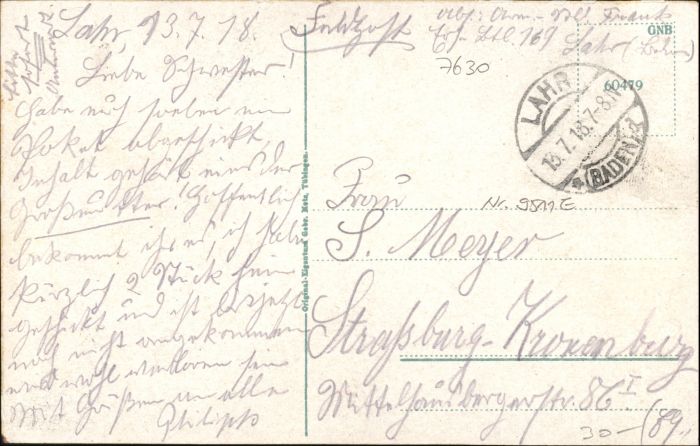 Bitte
sofort
Antwort
Lahr, 13.7.18.
Liebe Schwester!
Habe euch soeben ein
Paket abgeschickt,
Inhalt gehört eins der
Großmutter! Hoffentlich
bekommt ihr es, ich habe
kürzlich 2 Stück heim
geschickt und ist bis jetzt
noch nicht angekommen
und wohl verloren sein
Mit Grüßen an alle
Philipp
Feldpost
Abs: Arm.- Frank
Ers. Btl. 169 Lahr (Baden)
7630
GNB
60479
LAHR
13.7.18.7-8N
* (BADEN)
Original-Eigentum Gebr. Metz, Tübingen.
Frau
Nr. 9811 E
S. Meyer
Straßburg-Kronenburg
Mittelhausbergerstr. 86 I
30-
(Els.